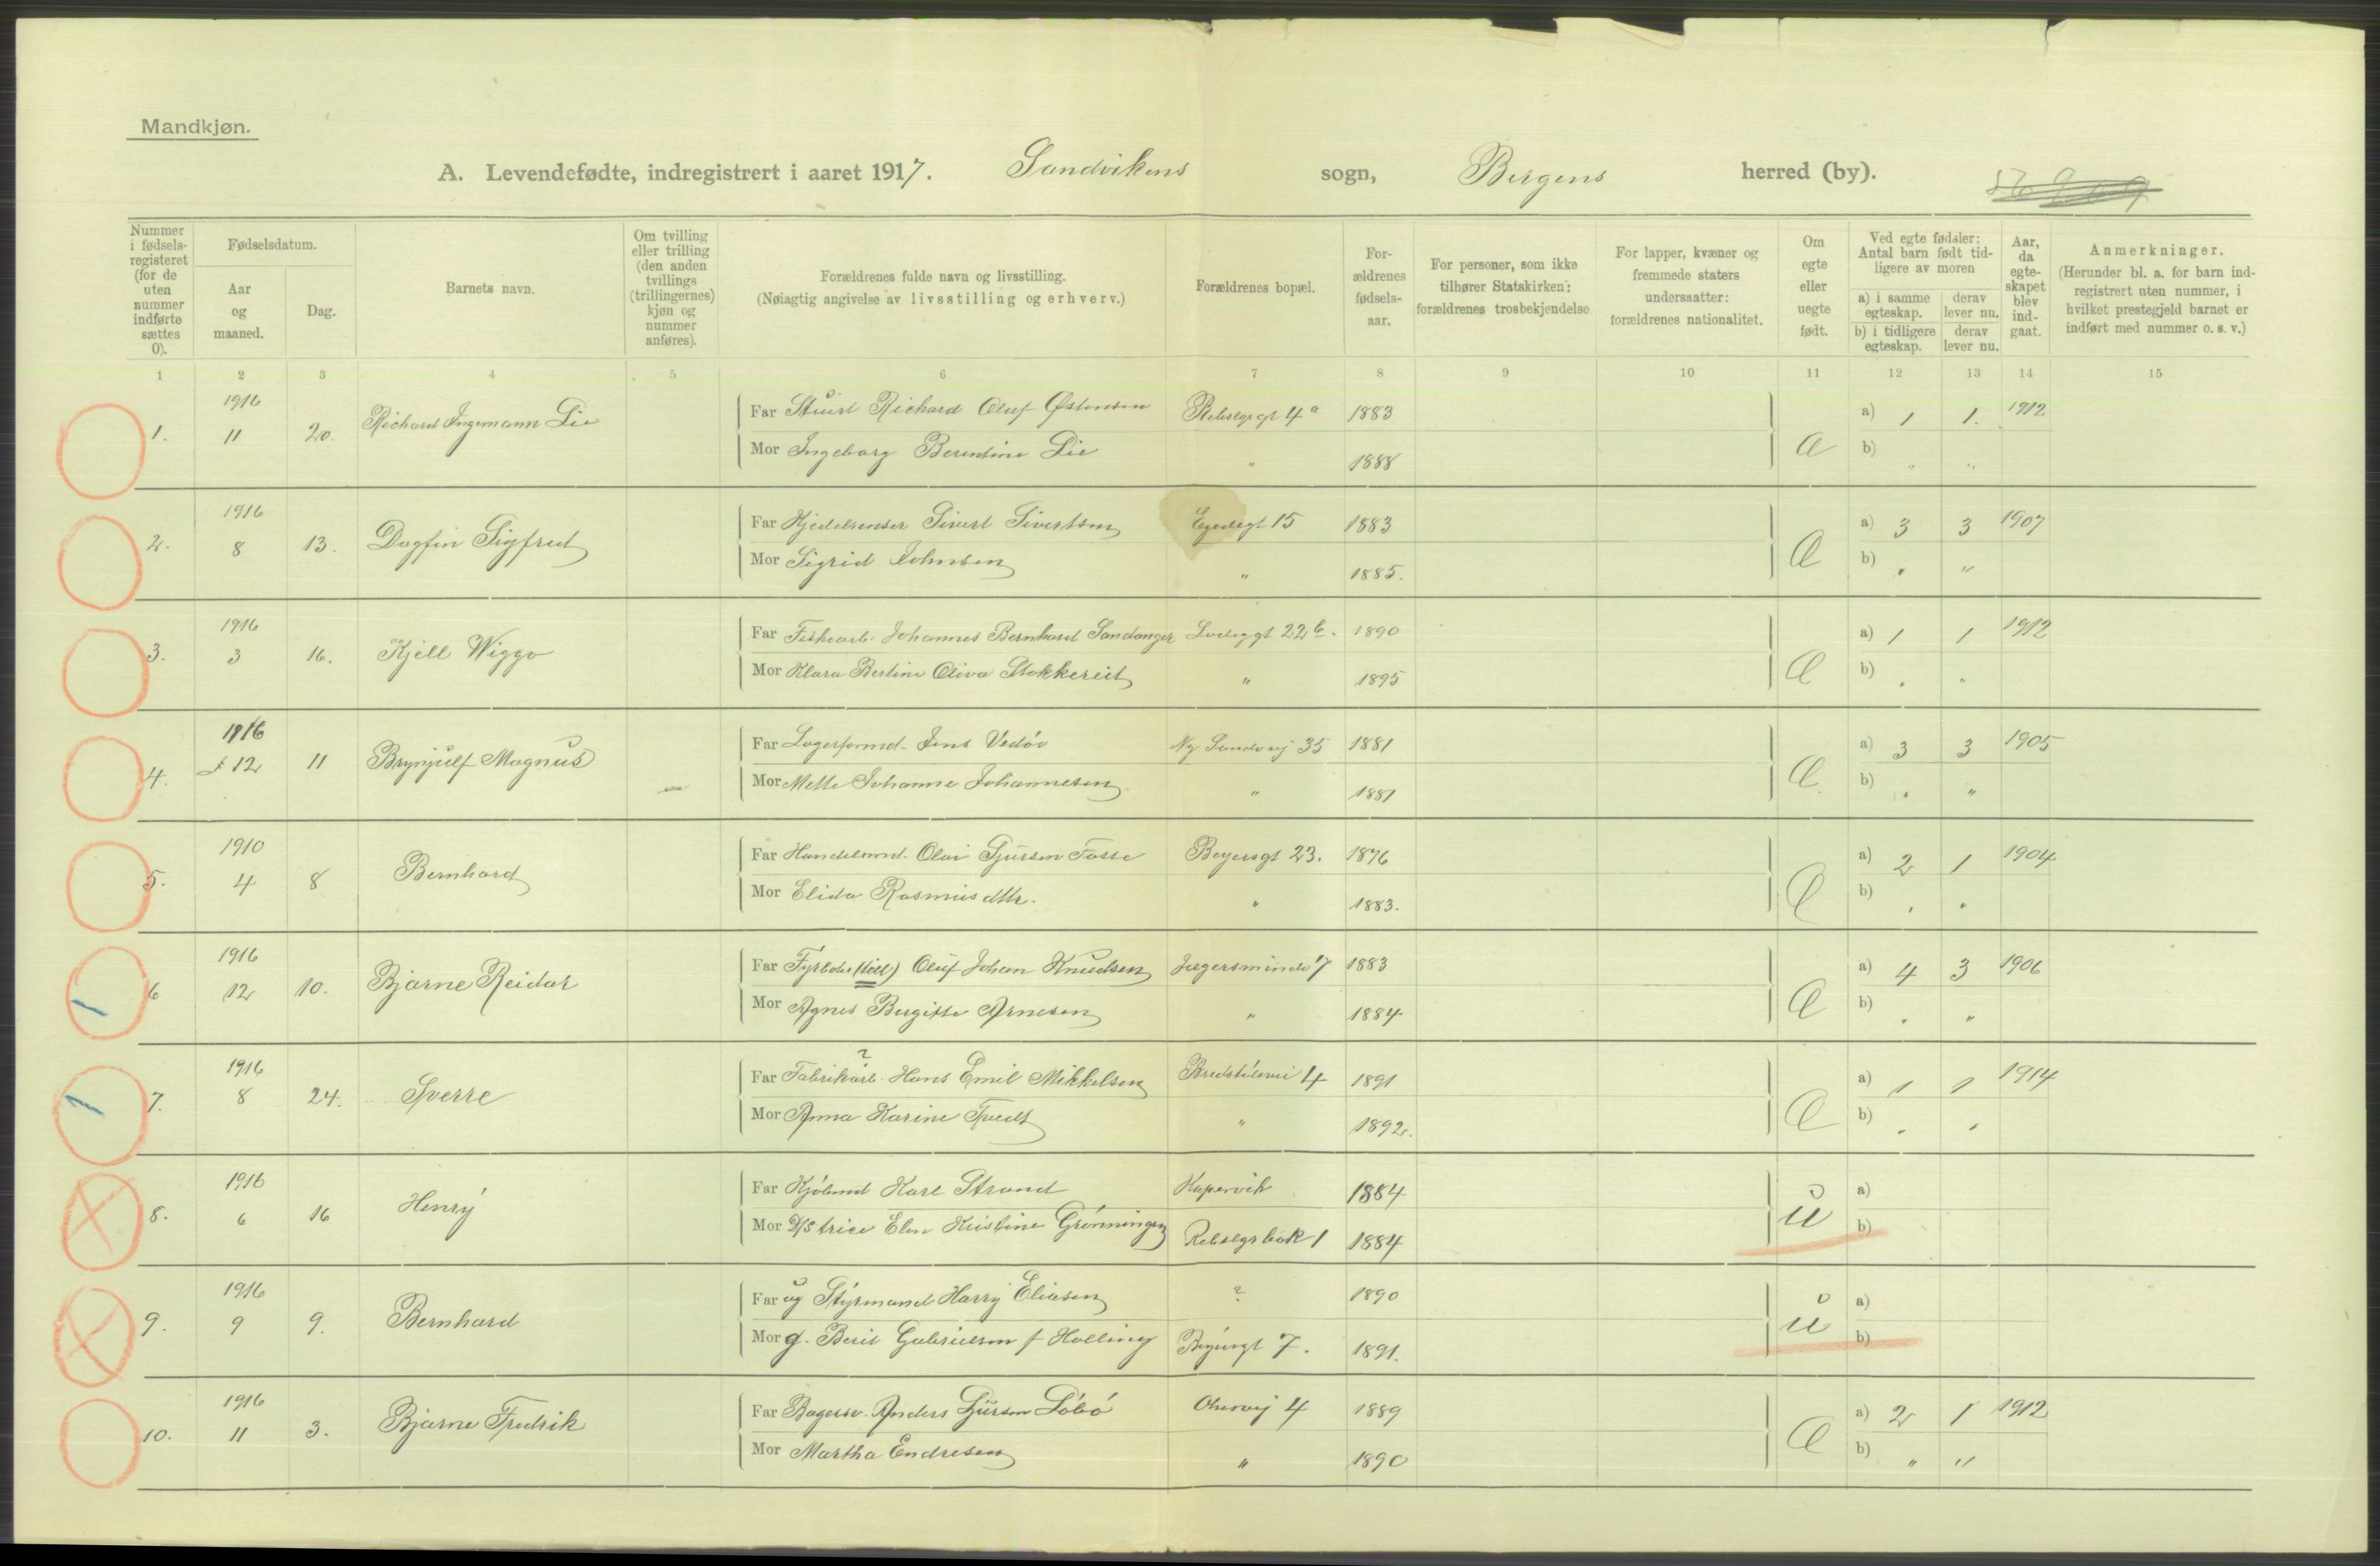 Mandkjøn.
A. Levendefødte, indregistrert i aaret 1917. Sandvikens sogn, Bergens herred (by).
Nummer i fødsels-registeret (for de uten nummer indførte sættes 0).
Fødselsdatum.
Aar og maaned.
Dag.
Barnets navn.
Om tvilling eller trilling (den anden tvillings (trillingernes) kjøn og nummer anføres).
Forældrenes fulde navn og livsstilling.
(Nøiagtig angivelse av livsstilling og erhverv.)
Forældrenes bopæl.
For-ældrenes fødsels-aar.
For personer, som ikke tilhører Statskirken: forældrenes trosbekjendelse
For lapper, kvæner og fremmede staters undersaatter: forældrenes nationalitet.
Om egte eller uegte født.
Ved egte fødsler: Antal barn født tid-ligere av moren
a) i samme egteskap.
derav lever nu.
b) i tidligere egteskap.
derav lever nu.
Aar, da egte-skapet blev ind-gaat.
Anmerkninger.
(Herunder bl. a. for barn ind-registrert uten nummer, i hvilket prestegjeld barnet er indført med nummer o. s. v.)
1 2 3 4 5 6 7 8 9 10 11 12 13 14 15
1916
1. 11 20. Richard Ingemann Lie
Far Richard Oluf Østensen 4a 1883 a) 1 1. 1912
Mor Ingeborg Berentine Lie " 1888 b) " "
1916
2. 8 13. Dagfin Sigfred
Far Sivert Sivertsen Egedesgt 15 1883 a) 3 3 1907
Mor Sigrid Johnsen " 1885. b) " "
1916
3. 3 16. Kjell Wiggo
Far Johannes Bernhard Sandanger 22b. 1890 a) 1 1 1912
Mor Klara Bertine Oliva Stokkereit " 1895 b) " "
1916
4. 12 11 Brynjulf Magnus
Far Lagerformd. Jens Vedøe Ny Sandvej 35 1881 a) 3 3 1905
Mor Mette Johanne Johannesen " 1881 b) " "
1910
5. 4 8 Bernhard
Far Handelsmd. Olai Sjursen Fosse 23. 1876 a) 2 1 1904
Mor Elida Rasmusdtr. " 1883. b) " "
1916
1 6 12 10. Bjarne Reidar
Far Fyrbøter Oluf Johan Knudsen Jægersminde 7 1883 a) 4 3 1906
Mor Agnes Bergitte Arnesen " 1884 b) " "
1916
1 7. 8 24. Sverre
?
Far Fabrikarb. Hans Emil Mikkelsen 4 1891 a) 1 1 1914
Mor Anna Karine Tvedt " 1892. b) " "
1916
8. 6 16 Henry
Far Karl Strand Kopervik 1884 u a)
Mor Elen Kristine Grønningen 1 1884 b)
1916
9. 9 9. Bernhard
Far ug Styrmand Harry Eliasen ? 1890 u a)
Mor g. Berit Gabrielsen f Holling 7. 1891. b)
1916
10. 11 3. Bjarne Fredrik
Far Bagersv. Anders Sjursen Løbø 4 1889 a) 2 1 1912
Mor Martha Endresen " 1890 b) " "